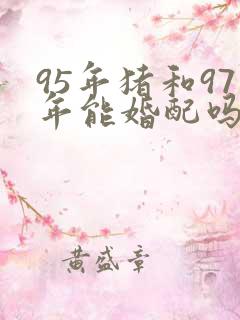 95年猪和97
年能婚配吗
黄盛章